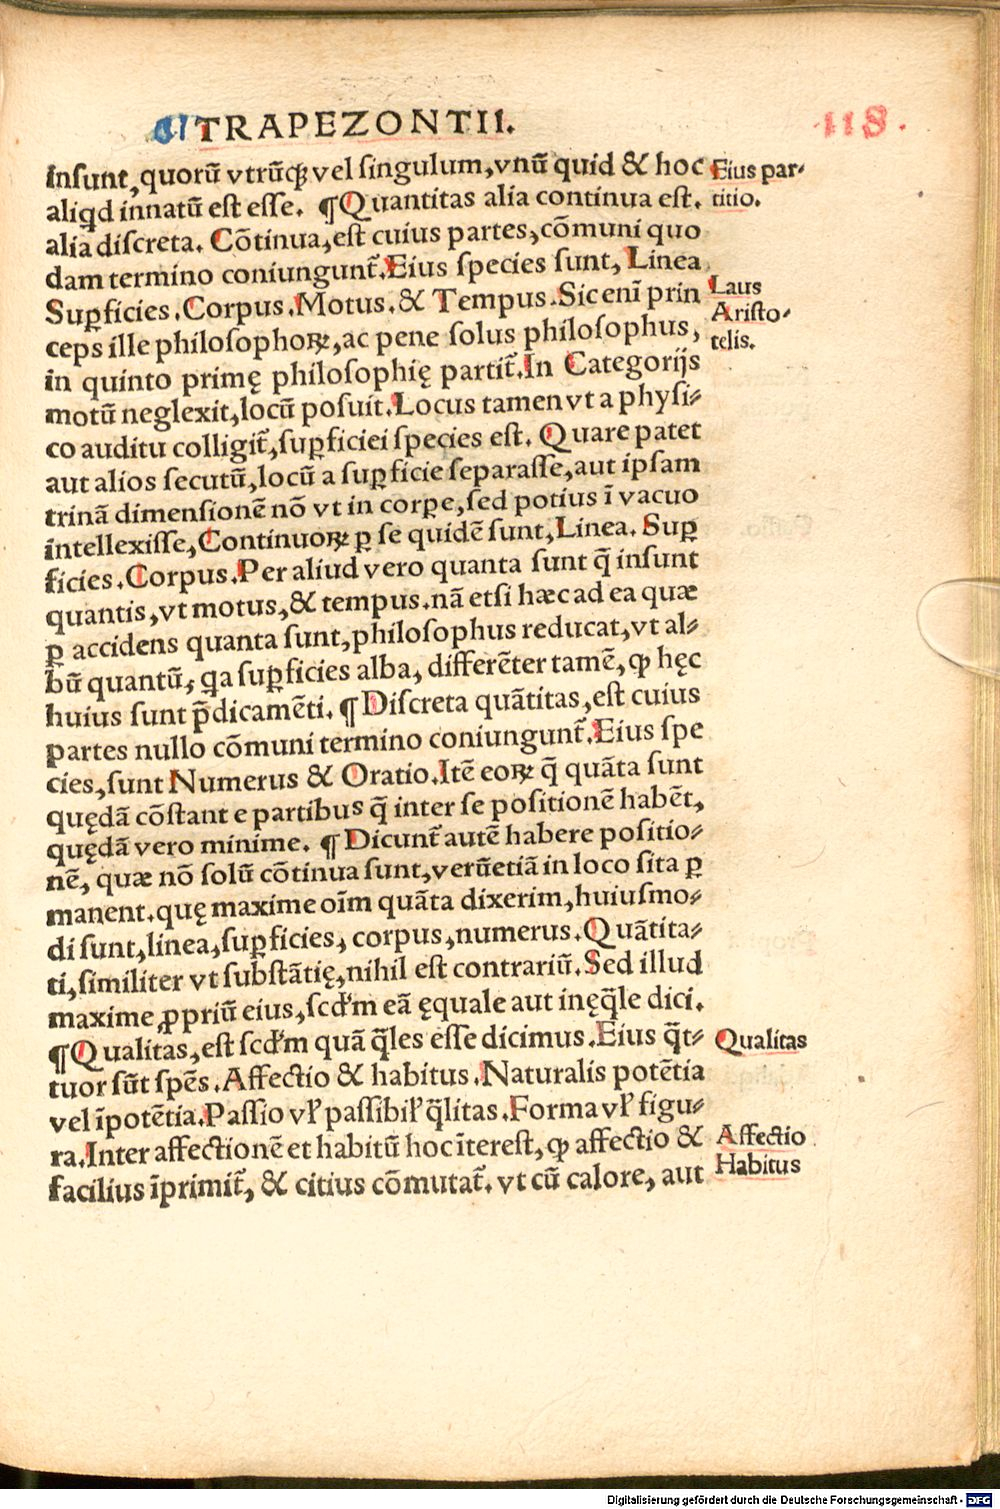 TRAPEZONTII.
118.
insunt, quorū vtrūq; vel singulum, vnū quid & hoc
aliqd innatū est esse. ¶ Quantitas alia continua est.
alia discreta. Cōtinua, est cuius partes, cōmuni quo
dam termino coniungunt̃. Eius species sunt, Linea
Suꝑficies. Corpus. Motus. & Tempus. Sic enī prin
ceps ille philosophoꝝ, ac pene solus philosophus,
in quinto primę philosophię partit̃. In Categorijs
motū neglexit, locū posuit. Locus tamen vt a physi⸗
co auditu colligit̃, suꝑficiei species est. Quare patet
aut alios secutū, locū a suꝑficie separasse, aut ipsam
trinā dimensionē nō vt in corꝑe, sed potius ī vacuo
intellexisse, Continuoꝝ ꝑ se quidē sunt, Linea. Suꝑ
ficies. Corpus. Per aliud vero quanta sunt q̄ insunt
quantis, vt motus, & tempus. nā etsi hæc ad ea quæ
ꝑ accidens quanta sunt, philosophus reducat, vt al⸗
bū quantū, qa suꝑficies alba, differēter tamē, ꝙ hęc
huius sunt p̄dicamēti. ¶ Discreta quātitas, est cuius
partes nullo cōmuni termino coniungunt̃. Eius spe
cies, sunt Numerus & Oratio. Itē eoꝝ q̄ quāta sunt
quędā cōstant e partibus q̄ inter se positionē habēt,
quędā vero minime. ¶ Dicunt̃ autē habere positio⸗
nē, quæ nō solū cōtinua sunt, verūetiā in loco sita ꝑ
manent. quę maxime oīm quāta dixerim, huiusmo⸗
di sunt, linea, suꝑficies, corpus, numerus. Quātita⸗
ti, similiter vt substātię, nihil est contrariū. Sed illud
maxime ꝓpriū eius, scd'm eā ęquale aut inęq̄le dici.
¶ Qualitas, est scd'm quā q̄les esse dicimus. Eius q̄t⸗
tuor sūt spēs. Affectio & habitus. Naturalis potētia
vel īpotētia. Passio vl' passibil' q̄litas. Forma vl' figu⸗
ra. Inter affectionē et habitū hoc īterest, ꝙ affectio &
facilius īprimit̃, & citius cōmutat̃. vt cū calore, aut
Eius par⸗
titio.
Laus
Aristo⸗
telis.
Qualitas
Affectio
Habitus
Digitalisierung gefördert durch die Deutsche Forschungsgemeinschaft - DFG